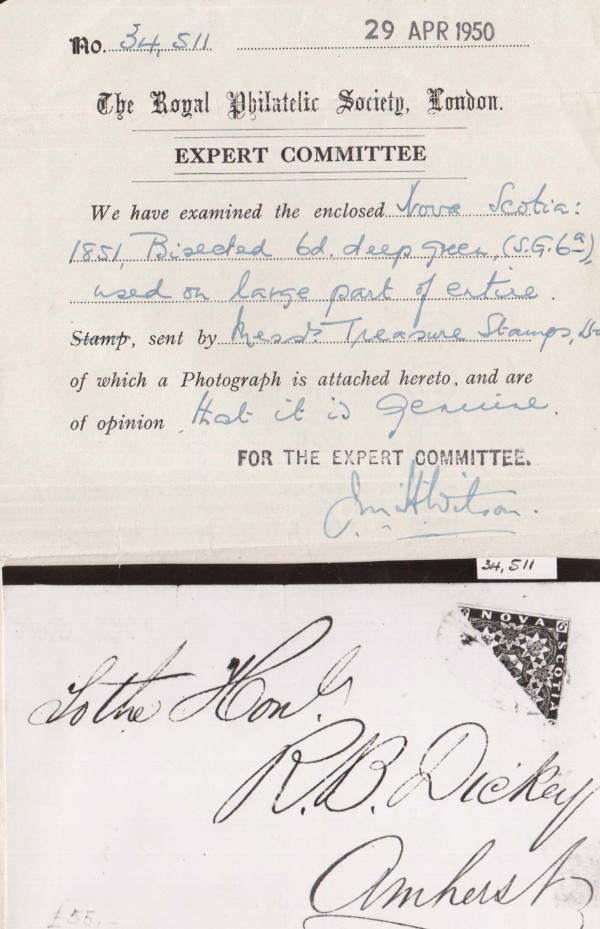 No. 34,511 29 APR 1950
The Royal Philatelic Society, London.
EXPERT COMMITTEE
We have examined the enclosed Nova Scotia:
1851, Bisected 6d. deep green, (S.G.6a),
used on large part of entire.
Stamp, sent by Messrs Treasure Stamps,
of which a Photograph is attached hereto, and are
of opinion that it is genuine.
FOR THE EXPERT COMMITTEE.
34,511
6 NOVA 6
SCOTIA
To the Honble
R.B. Dickey
Amherst
£55.-